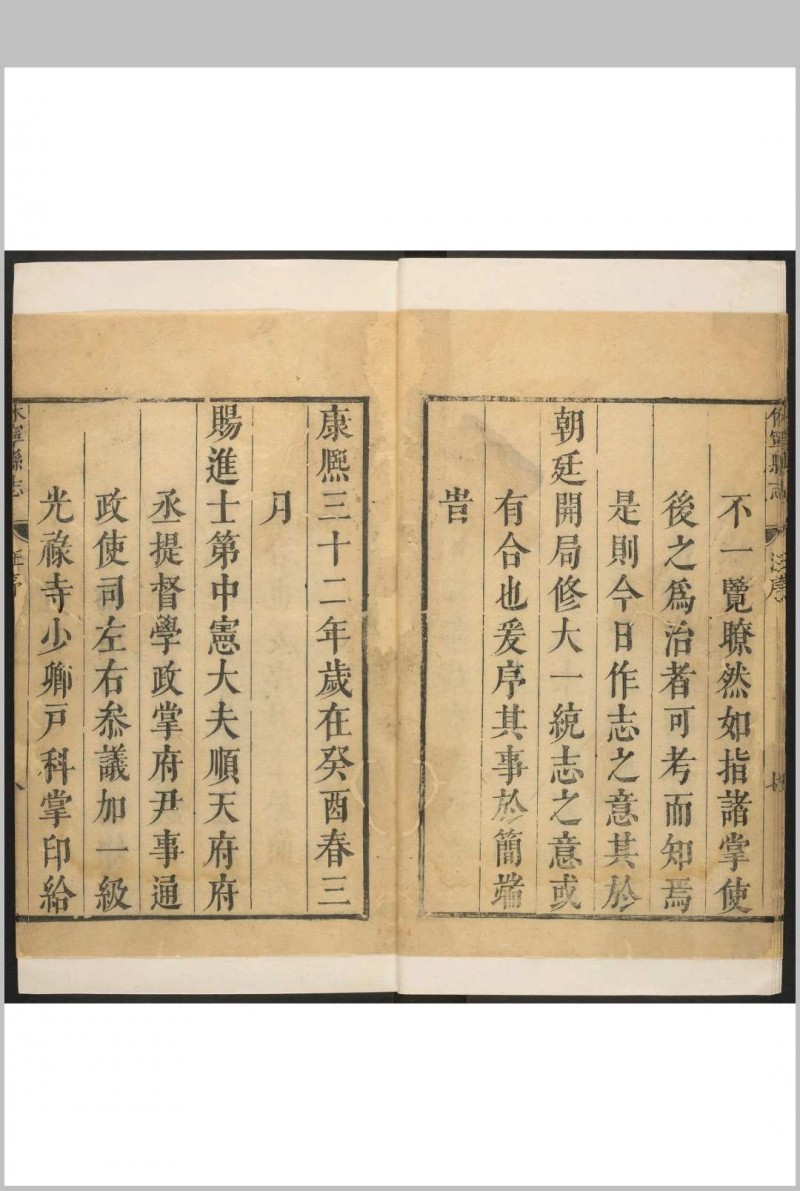 休寧縣志
汪序
不一覽瞭然如指諸掌使
後之爲治者可考而知焉
是則今日作志之意其於
朝廷開局修大一統志之意或
有合也爰序其事於簡端
旹
康熙三十二年歲在癸酉春三
月
賜進士第中憲大夫順天府府
丞提督學政掌府尹事通
政使司左右叅議加一級
光祿寺少卿戸科掌印給
休寧縣志
汪序
八